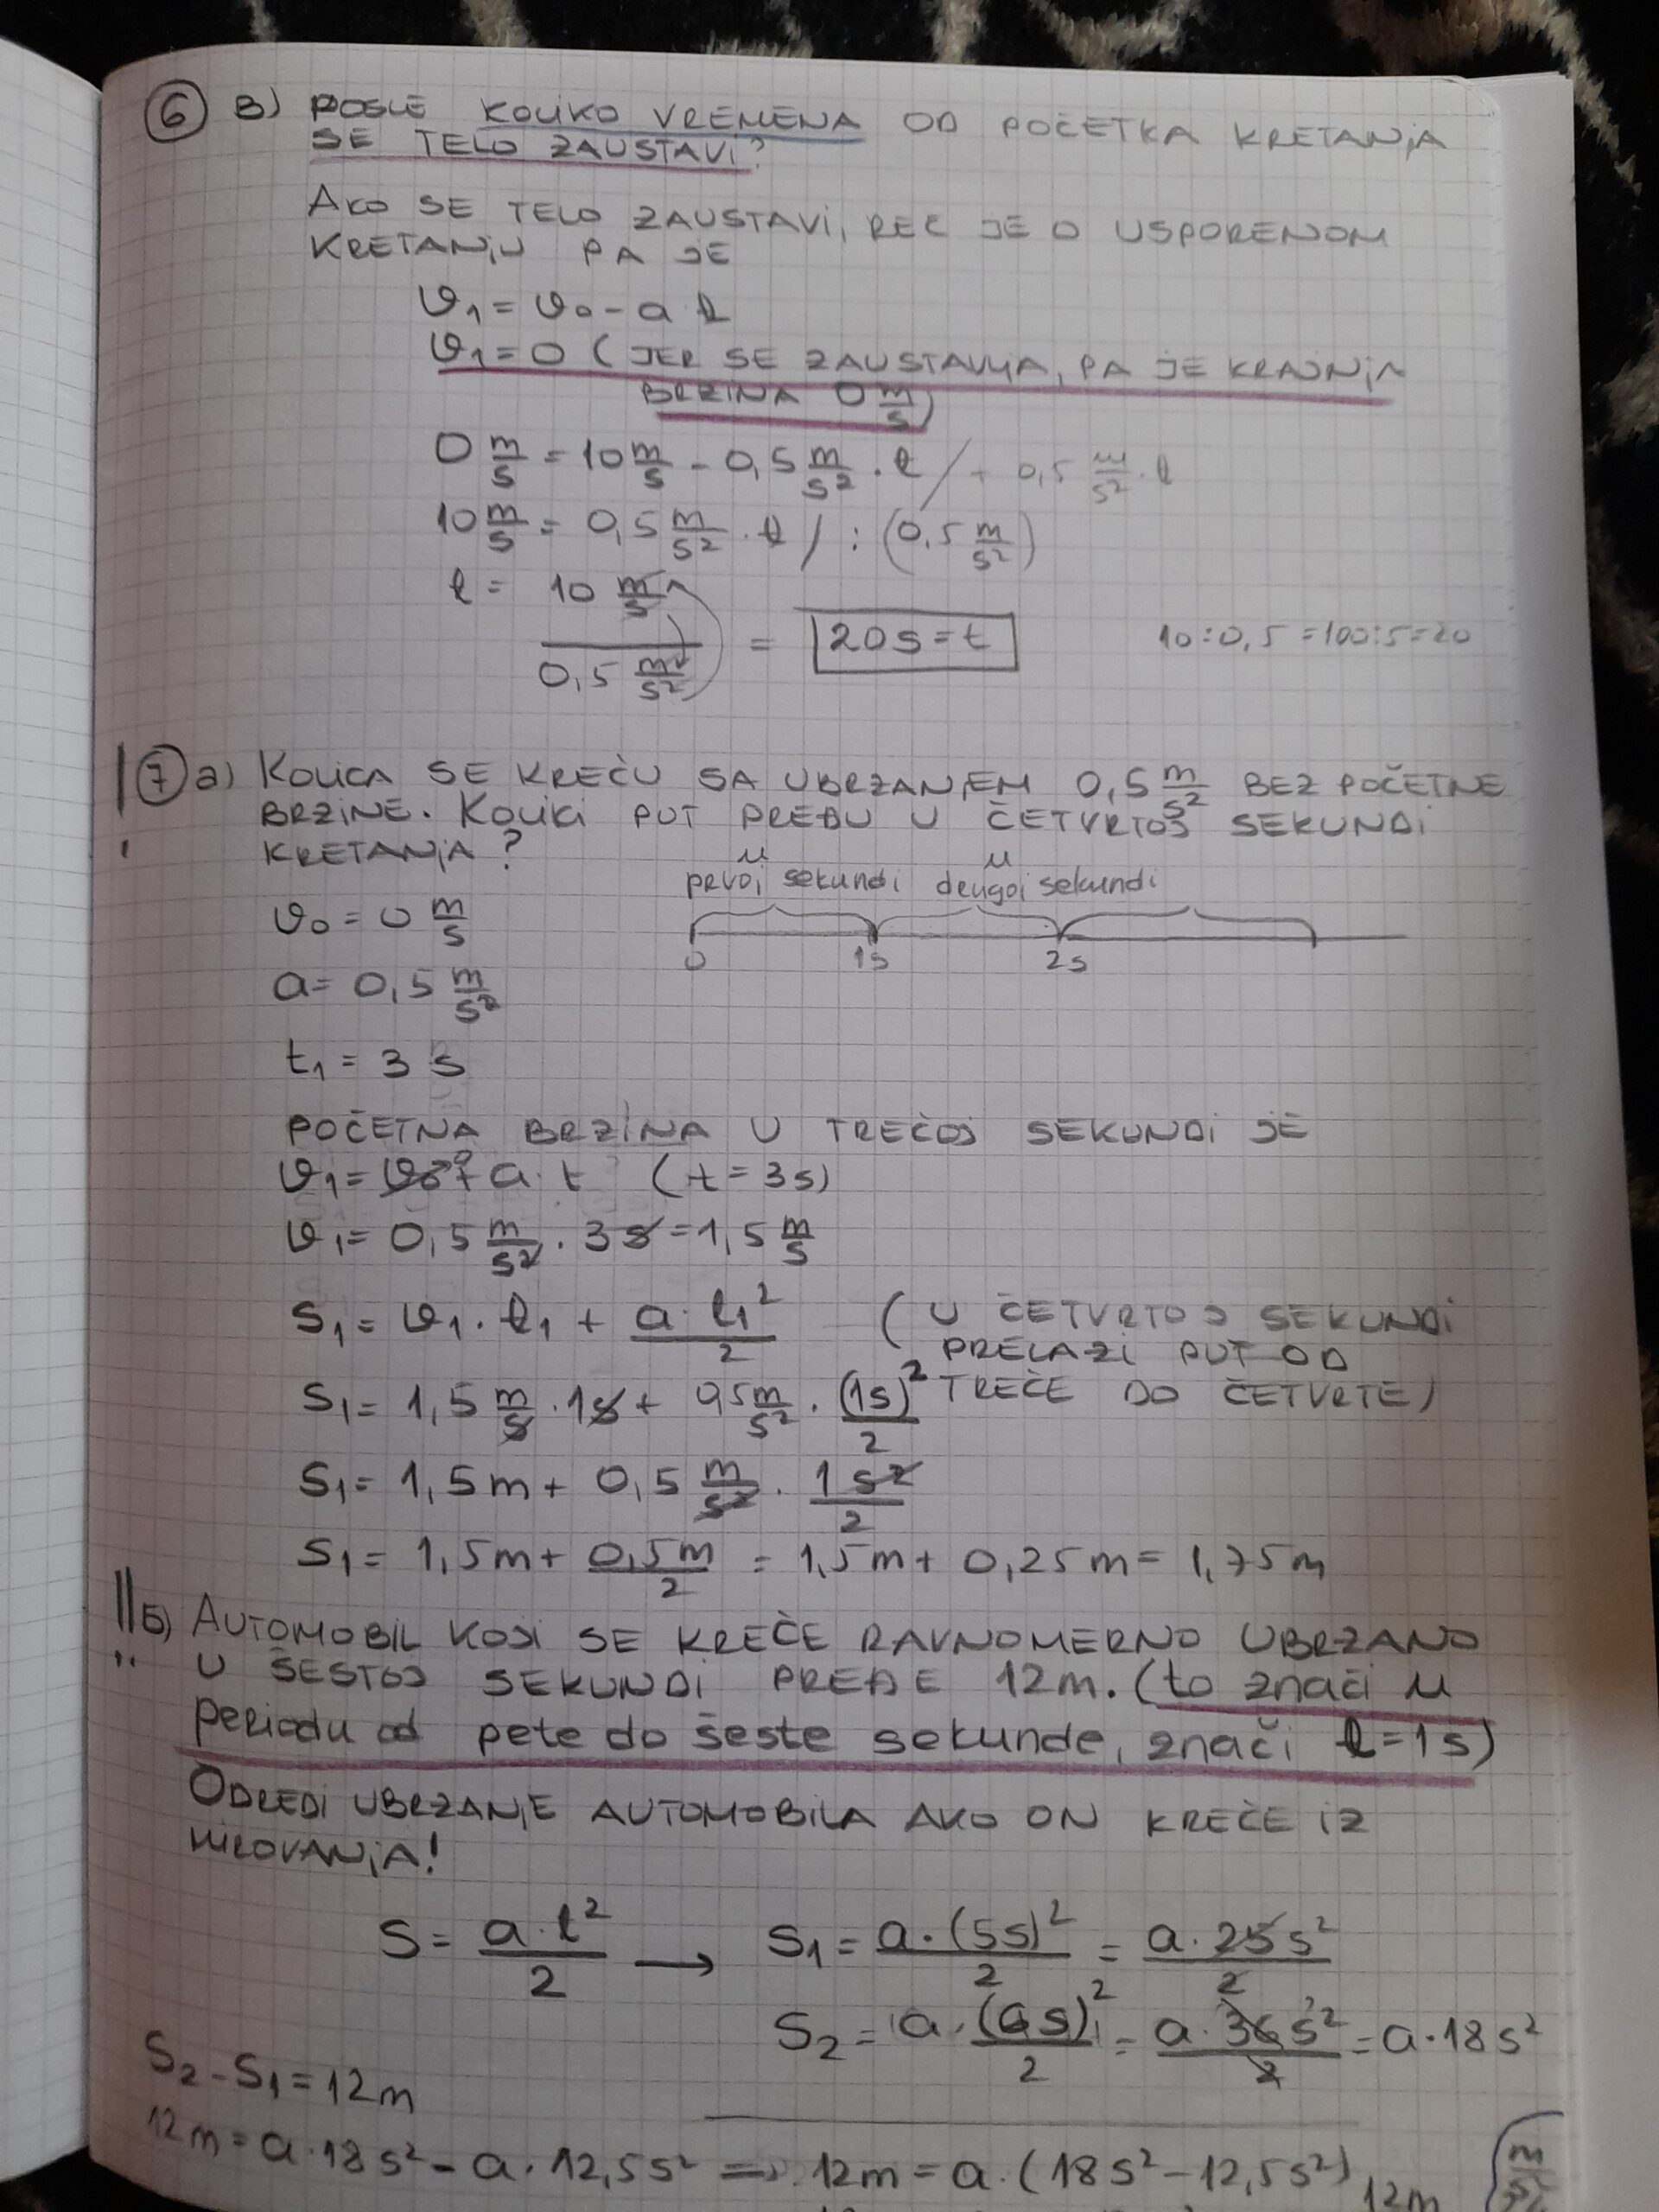 6 B) POSLE KOLIKO VREMENA OD POČETKA KRETANJA
SE TELO ZAUSTAVI?
AKO SE TELO ZAUSTAVI, REČ JE O USPORENOM
KRETANJU PA JE
v₁ = v₀ - a t
v₁ = 0 (JER SE ZAUSTAVLJA, PA JE KRAJNJA
BRZINA 0 m/s)
0 m/s = 10 m/s - 0,5 m/s² · t / + 0,5 m/s² · t
10 m/s = 0,5 m/s² · t / : (0,5 m/s²)
t = 10 m/s / 0,5 m/s² = 20s = t 10:0,5 = 100:5 = 20
7 a) KOLICA SE KREĆU SA UBRZANJEM 0,5 m/s² BEZ POČETNE
BRZINE. KOLIKI PUT PREĐU U ČETVRTOJ SEKUNDI
KRETANJA?
u prvoj sekundi u drugoj sekundi
0 1s 2s
v₀ = 0 m/s
a = 0,5 m/s²
t₁ = 3 s
POČETNA BRZINA U TREĆOJ SEKUNDI JE
v₁ = v₀ + a · t (t = 3s)
v₁ = 0,5 m/s² · 3s = 1,5 m/s
s₁ = v₁ · t₁ + a · t₁² / 2 (U ČETVRTOJ SEKUNDI
PRELAZI PUT OD
TREĆE DO ČETVRTE)
s₁ = 1,5 m/s · 1s + 0,5 m/s² · (1s)² / 2
s₁ = 1,5m + 0,5 m/s² · 1s² / 2
s₁ = 1,5m + 0,5m / 2 = 1,5m + 0,25m = 1,75m
Б) AUTOMOBIL KOJI SE KREĆE RAVNOMERNO UBRZANO
U ŠESTOJ SEKUNDI PREĐE 12m. (to znači u
periodu od pete do šeste sekunde, znači t = 1s)
ODREDI UBRZANJE AUTOMOBILA AKO ON KREĆE IZ
MIROVANJA!
S = a · t² / 2 → S₁ = a · (5s)² / 2 = a · 25s² / 2
S₂ = a · (6s)² / 2 = a · 36s² / 2 = a · 18s²
S₂ - S₁ = 12m
12m = a · 18s² - a · 12,5s² => 12m = a · (18s² - 12,5s²)
12m
m/s²